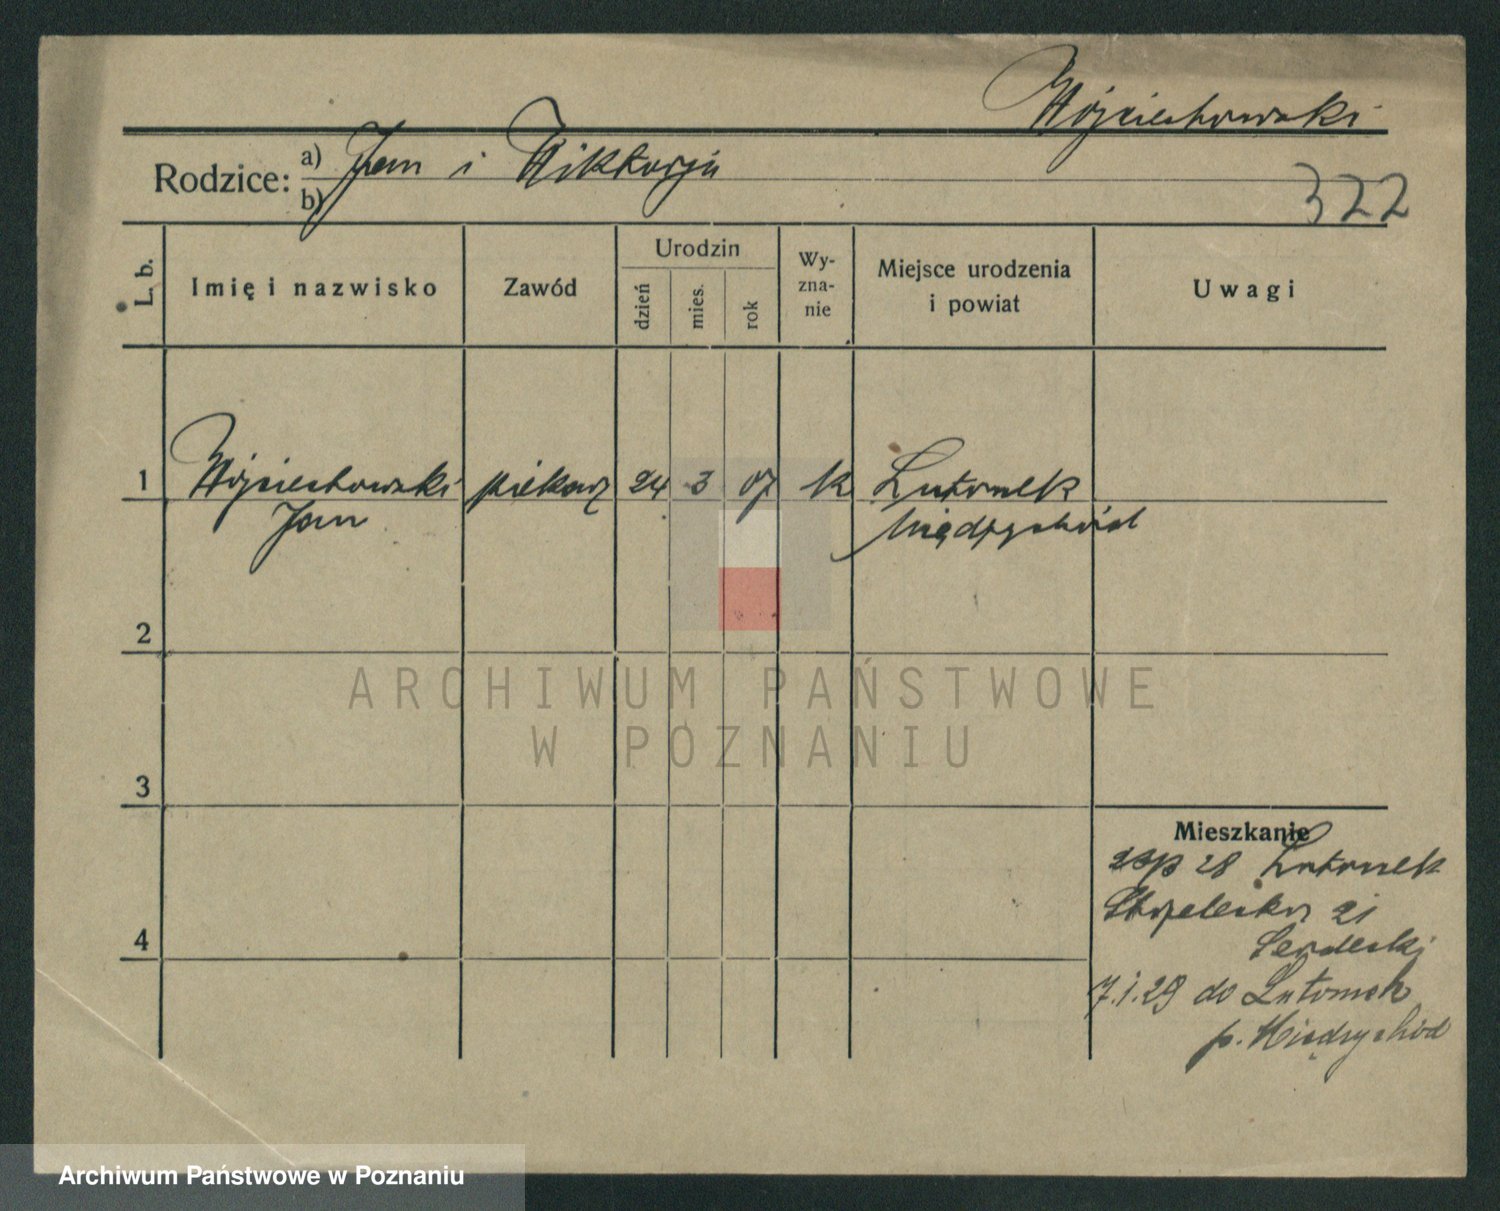 Wojciechowski
Rodzice: a) Jan i Wiktorja
b)
322
L. b.
Imię i nazwisko
Zawód
Urodzin
dzień
mies.
rok
Wy-
zna-
nie
Miejsce urodzenia
i powiat
Uwagi
1 Wojciechowski piekarz 24 3 07 k Lutomek
Jan Międzychód
2
ARCHIWUM PAŃSTWOWE
W POZNANIU
3
Mieszkanie
28 Lutomek
Strzelecka 21
4
7.1.29 do Lutomek
p. Międzychód
Archiwum Państwowe w Poznaniu